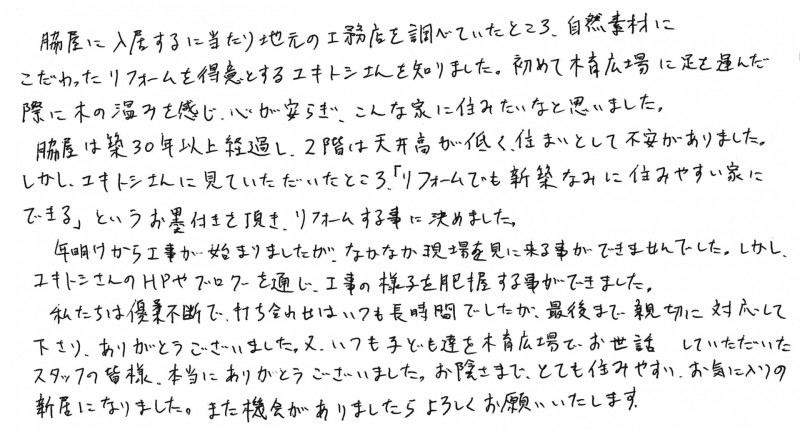 脇屋に入居するに当たり地元の工務店を調べていたところ、自然素材に
こだわったリフォームを得意とするユキトシさんを知りました。初めて木育広場に足を運んだ
際に木の温みを感じ、心が安らぎ、こんな家に住みたいなと思いました。
脇屋は築30年以上経過し、2階は天井高が低く、住まいとして不安がありました。
しかし、ユキトシさんに見ていただいたところ、「リフォームでも新築なみに住みやすい家に
できる」というお墨付きを頂き、リフォームする事に決めました。
年明けから工事が始まりましたが、なかなか現場を見に来る事ができませんでした。しかし、
ユキトシさんのHPやブログーを通じ、工事の様子を把握する事ができました。
私たちは優柔不断で、打ち合わせはいつも長時間でしたが、最後まで親切に対応して
下さり、ありがとうございました。又、いつも子ども達を木育広場でお世話 していただいた
スタッフの皆様、本当にありがとうございました。お陰さまで、とても住みやすい、お気に入りの
新居になりました。また機会がありましたらよろしくお願いいたします。